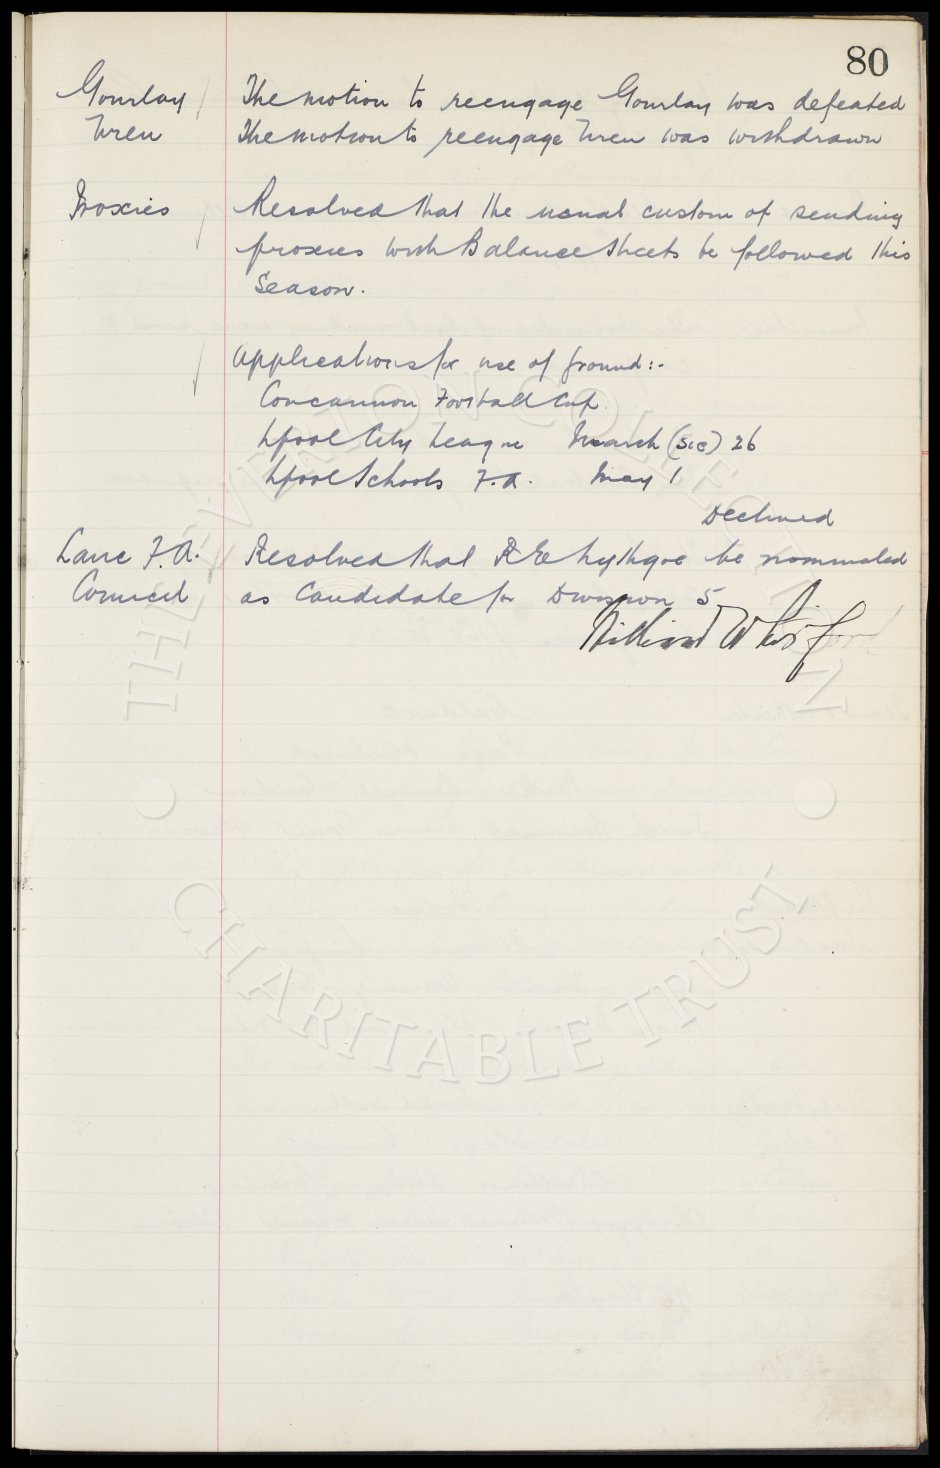 80
Gourlay The motion to reengage Gourlay was defeated
Wren The motion to reengage Wren was withdrawn
Proxies Resolved that the usual custom of sending
proxies with Balance Sheets be followed this
Season.
Applications for use of ground:-
Concannon Football Cup.
Lpool City League March (sic) 26
Lpool Schools F.A. May 1
Declined
Lanc F.A. Resolved that R E Lythgoe be nominated
Council as Candidate for Division 5
William Whitford
THE EVERTON COLLECTION
CHARITABLE TRUST